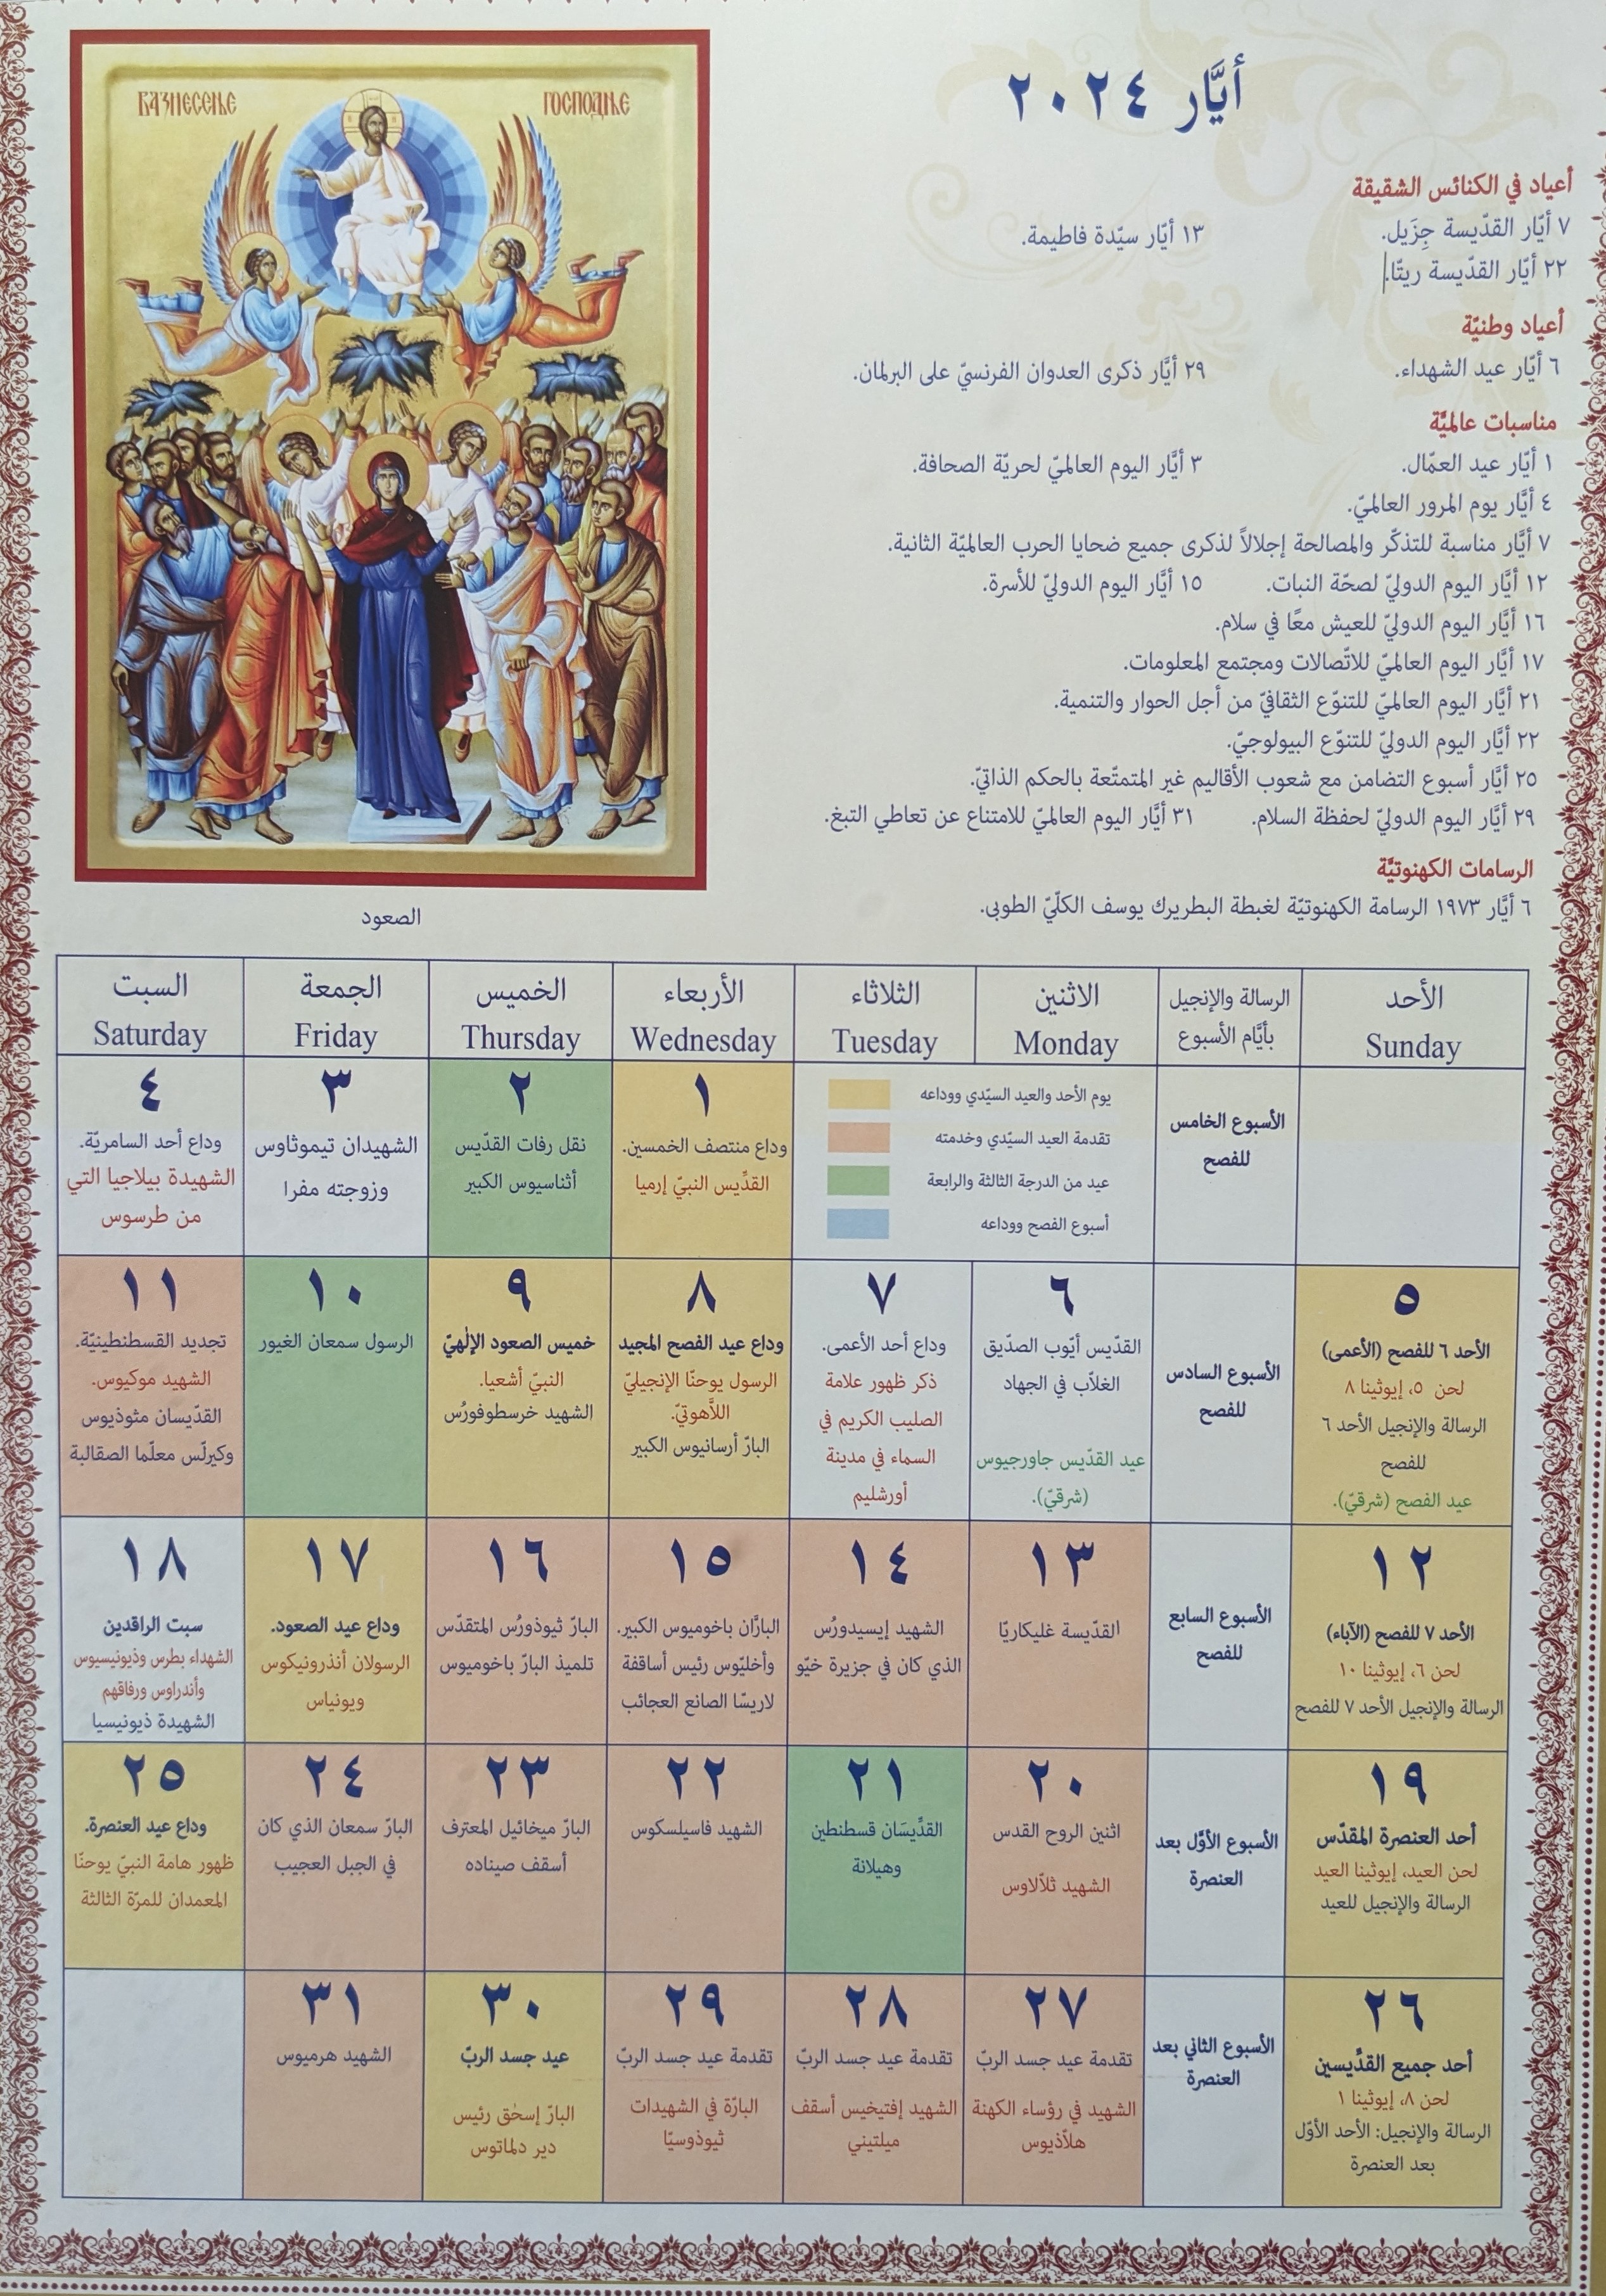 أيَّار ٢٠٢٤
أعياد في الكنائس الشقيقة
٧ أيّار القدّيسة جِزَيل. ١٣ أيّار سيّدة فاطيمة.
٢٢ أيّار القدّيسة ريتّا.
أعياد وطنيّة
٦ أيّار عيد الشهداء. ٢٩ أيَّار ذكرى العدوان الفرنسيّ على البرلمان.
مناسبات عالميَّة
١ أيّار عيد العمّال. ٣ أيَّار اليوم العالميّ لحريّة الصحافة.
٤ أيَّار يوم المرور العالميّ.
٧ أيَّار مناسبة للتذكّر والمصالحة إجلالاً لذكرى جميع ضحايا الحرب العالميّة الثانية.
١٢ أيَّار اليوم الدوليّ لصحّة النبات. ١٥ أيَّار اليوم الدوليّ للأسرة.
١٦ أيَّار اليوم الدوليّ للعيش معًا في سلام.
١٧ أيَّار اليوم العالميّ للاتّصالات ومجتمع المعلومات.
٢١ أيَّار اليوم العالميّ للتنوّع الثقافيّ من أجل الحوار والتنمية.
٢٢ أيَّار اليوم الدوليّ للتنوّع البيولوجيّ.
٢٥ أيَّار أسبوع التضامن مع شعوب الأقاليم غير المتمتّعة بالحكم الذاتيّ.
٢٩ أيَّار اليوم الدوليّ لحفظة السلام. ٣١ أيَّار اليوم العالميّ للامتناع عن تعاطي التبغ.
الرسامات الكهنوتيَّة
٦ أيَّار ١٩٧٣ الرسامة الكهنوتيّة لغبطة البطريرك يوسف الكلّيّ الطوبى.
ВАЗНЕСЕЊЕ ГОСПОДЊЕ
الصعود
الأحد
Sunday
الرسالة والإنجيل
بأيَّام الأسبوع
الاثنين
Monday
الثلاثاء
Tuesday
الأربعاء
Wednesday
الخميس
Thursday
الجمعة
Friday
السبت
Saturday
الأسبوع الخامس
للفصح
يوم الأحد والعيد السيّدي ووداعه
تقدمة العيد السيّدي وخدمته
عيد من الدرجة الثالثة والرابعة
أسبوع الفصح ووداعه
١
وداع منتصف الخمسين.
القدِّيس النبيّ إرميا
٢
نقل رفات القدّيس
أثناسيوس الكبير
٣
الشهيدان تيموثاوس
وزوجته مفرا
٤
وداع أحد السامريّة.
الشهيدة بيلاجيا التي
من طرسوس
٥
الأحد ٦ للفصح (الأعمى)
لحن ٥، إيوثينا ٨
الرسالة والإنجيل الأحد ٦
للفصح
عيد الفصح (شرقيّ).
الأسبوع السادس
للفصح
٦
القدّيس أيّوب الصدّيق
الغلاّب في الجهاد
عيد القدّيس جاورجيوس
(شرقيّ).
٧
وداع أحد الأعمى.
ذكر ظهور علامة
الصليب الكريم في
السماء في مدينة
أورشليم
٨
وداع عيد الفصح المجيد
الرسول يوحنّا الإنجيليّ
اللاَّهوتيّ.
البارّ أرسانيوس الكبير
٩
خميس الصعود الإلٰهيّ
النبيّ أشعيا.
الشهيد خرسطوفورُس
١٠
الرسول سمعان الغيور
١١
تجديد القسطنطينيّة.
الشهيد موكيوس.
القدّيسان مثوذيوس
وكيرلّس معلّما الصقالبة
١٢
الأحد ٧ للفصح (الآباء)
لحن ٦، إيوثينا ١٠
الرسالة والإنجيل الأحد ٧ للفصح
الأسبوع السابع
للفصح
١٣
القدّيسة غليكاريّا
١٤
الشهيد إيسيدورُس
الذي كان في جزيرة خيّو
١٥
البارَّان باخوميوس الكبير.
وأخليّوس رئيس أساقفة
لاريسّا الصانع العجائب
١٦
البارّ ثيوذورُس المتقدّس
تلميذ البارّ باخوميوس
١٧
وداع عيد الصعود.
الرسولان أنذرونيكوس
ويونياس
١٨
سبت الراقدين
الشهداء بطرس وذيونيسيوس
وأندراوس ورفاقهم
الشهيدة ذيونيسيا
١٩
أحد العنصرة المقدّس
لحن العيد، إيوثينا العيد
الرسالة والإنجيل للعيد
الأسبوع الأوَّل بعد
العنصرة
٢٠
اثنين الروح القدس
الشهيد ثلاّلاوس
٢١
القدِّيسَان قسطنطين
وهيلانة
٢٢
الشهيد فاسيلسكوس
٢٣
البارّ ميخائيل المعترف
أسقف صيناده
٢٤
البارّ سمعان الذي كان
في الجبل العجيب
٢٥
وداع عيد العنصرة.
ظهور هامة النبيّ يوحنّا
المعمدان للمرّة الثالثة
٢٦
أحد جميع القدِّيسين
لحن ٨، إيوثينا ١
الرسالة والإنجيل: الأحد الأوّل
بعد العنصرة
الأسبوع الثاني بعد
العنصرة
٢٧
تقدمة عيد جسد الربّ
الشهيد في رؤساء الكهنة
هلاّذيوس
٢٨
تقدمة عيد جسد الربّ
الشهيد إفتيخيس أسقف
ميلتيني
٢٩
تقدمة عيد جسد الربّ
البارّة في الشهيدات
ثيوذوسيّا
٣٠
عيد جسد الربّ
البارّ إسحٰق رئيس
دير دلماتوس
٣١
الشهيد هرميوس